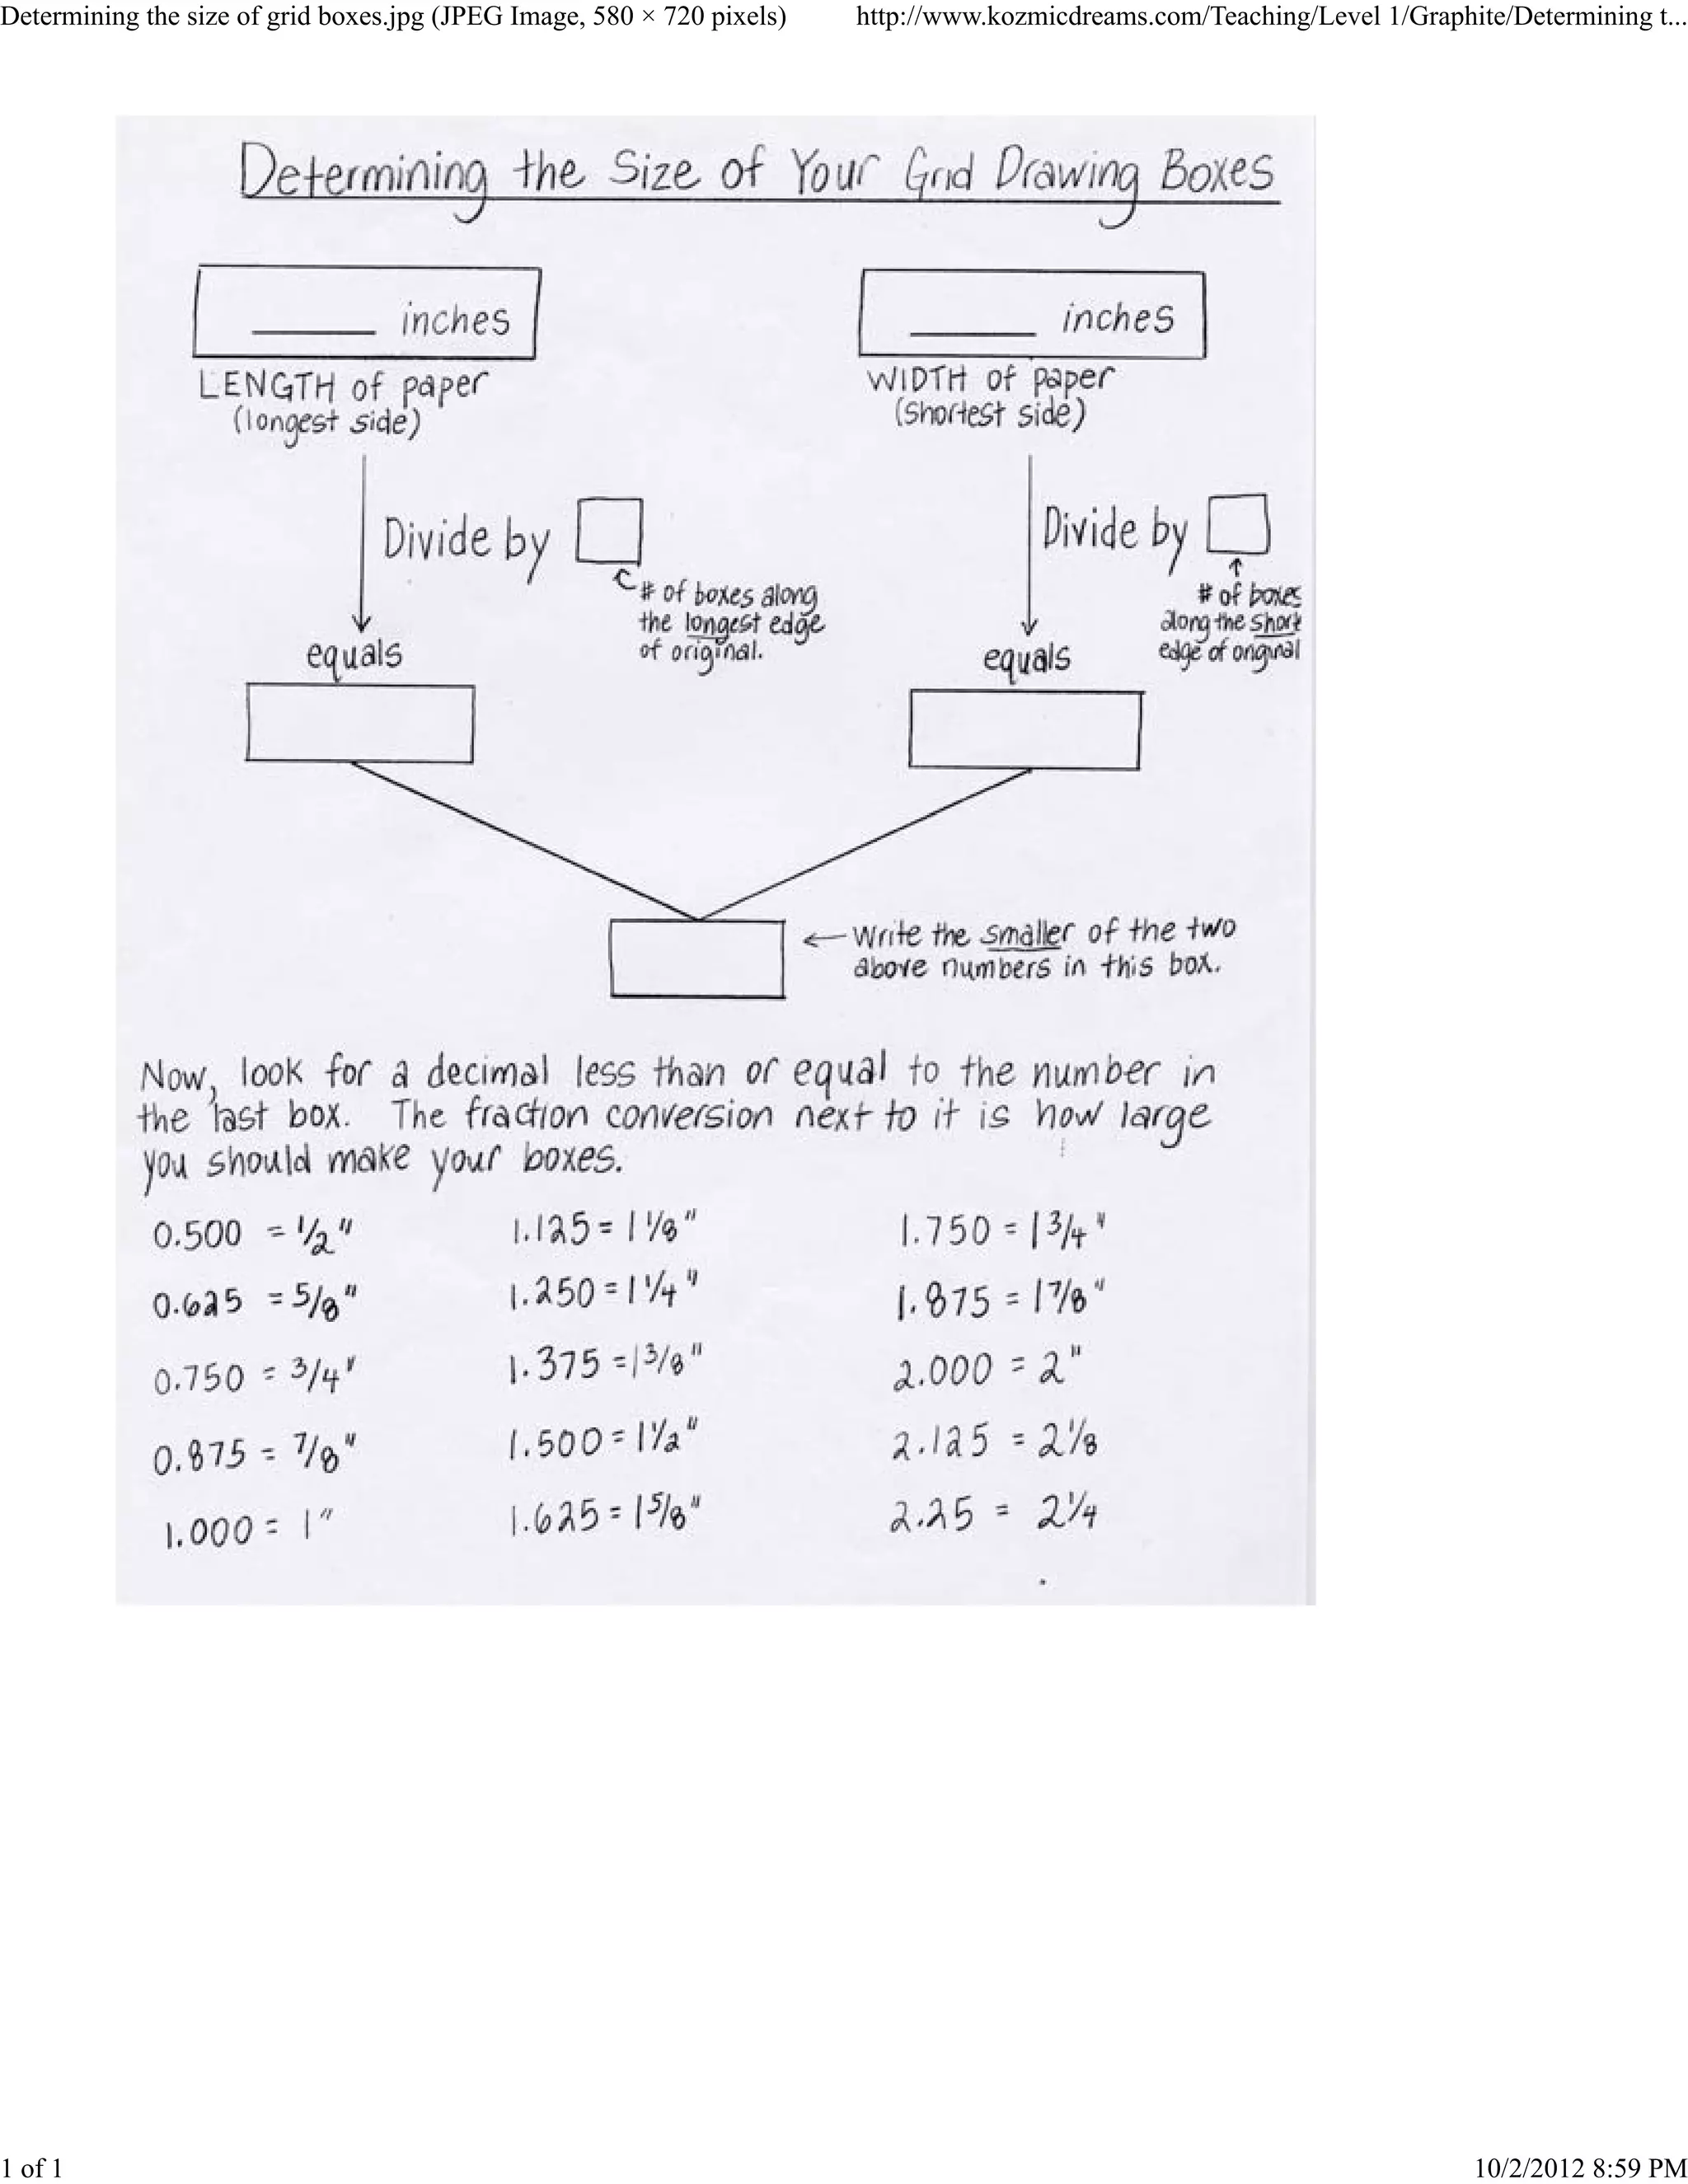 Determining the size of grid boxes.jpg (JPEG Image, 580 × 720 pixels)
http://www.kozmicdreams.com/Teaching/Level 1/Graphite/Determining t...
Determining the Size of Your Grid Drawing Boxes
____ inches
LENGTH of paper
(longest side)
____ inches
WIDTH of paper
(shortest side)
Divide by
# of boxes along
the longest edge
of original.
equals
Divide by
# of boxes
along the short
edge of original
equals
Write the smaller of the two
above numbers in this box.
Now, look for a decimal less than or equal to the number in
the last box. The fraction conversion next to it is how large
you should make your boxes.
0.500 = 1/2"
0.625 = 5/8"
0.750 = 3/4"
0.875 = 7/8"
1.000 = 1"
1.125 = 1 1/8"
1.250 = 1 1/4"
1.375 = 1 3/8"
1.500 = 1 1/2"
1.625 = 1 5/8"
1.750 = 1 3/4"
1.875 = 1 7/8"
2.000 = 2"
2.125 = 2 1/8
2.25 = 2 1/4
1 of 1
10/2/2012 8:59 PM